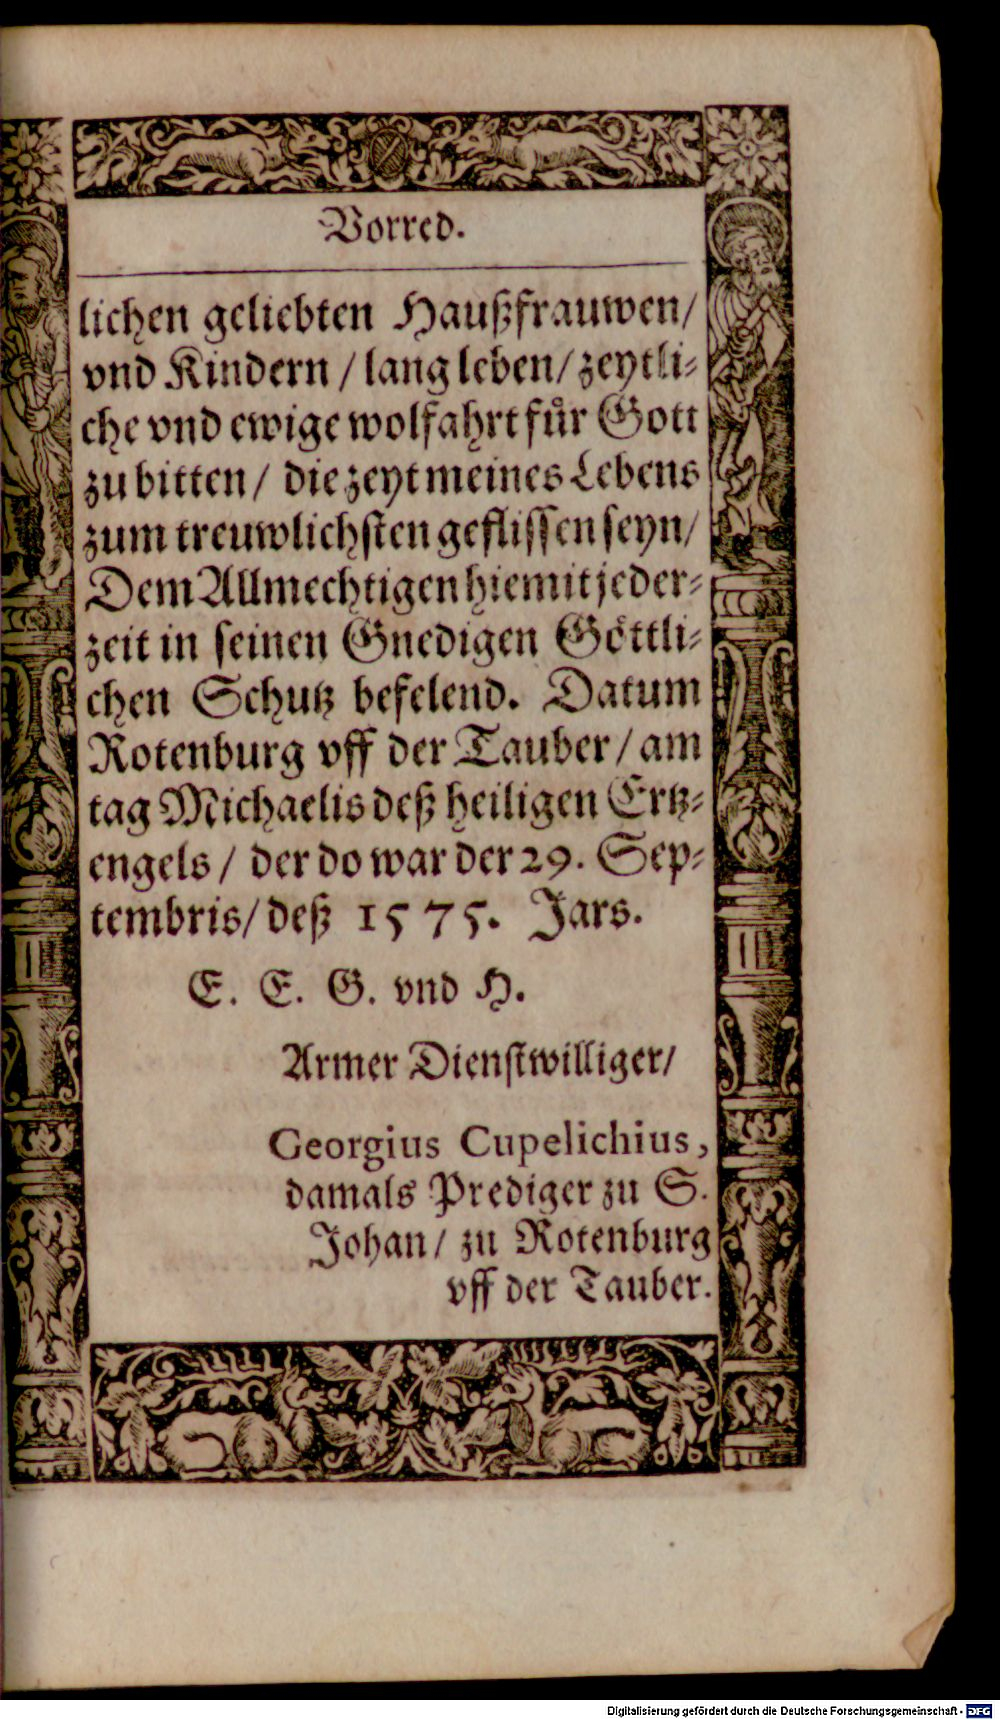 Vorred.
lichen geliebten Haußfrauwen/
vnd Kindern / lang leben/ zeytli-
che vnd ewige wolfahrt fuͤr Gott
zu bitten / die zeyt meines Lebens
zum treuwlichsten geflissen seyn/
Dem Allmechtigen hiemit jeder-
zeit in seinen Gnedigen Goͤttli-
chen Schutz befelend. Datum
Rotenburg vff der Tauber / am
tag Michaelis deß heiligen Ertz-
engels / der do war der 29. Sep-
tembris/ deß 1575. Jars.
E. E. G. vnd H.
Armer Dienstwilliger/
Georgius Cupelichius,
damals Prediger zu S.
Johan/ zu Rotenburg
vff der Tauber.
Digitalisierung gefördert durch die Deutsche Forschungsgemeinschaft - DFG